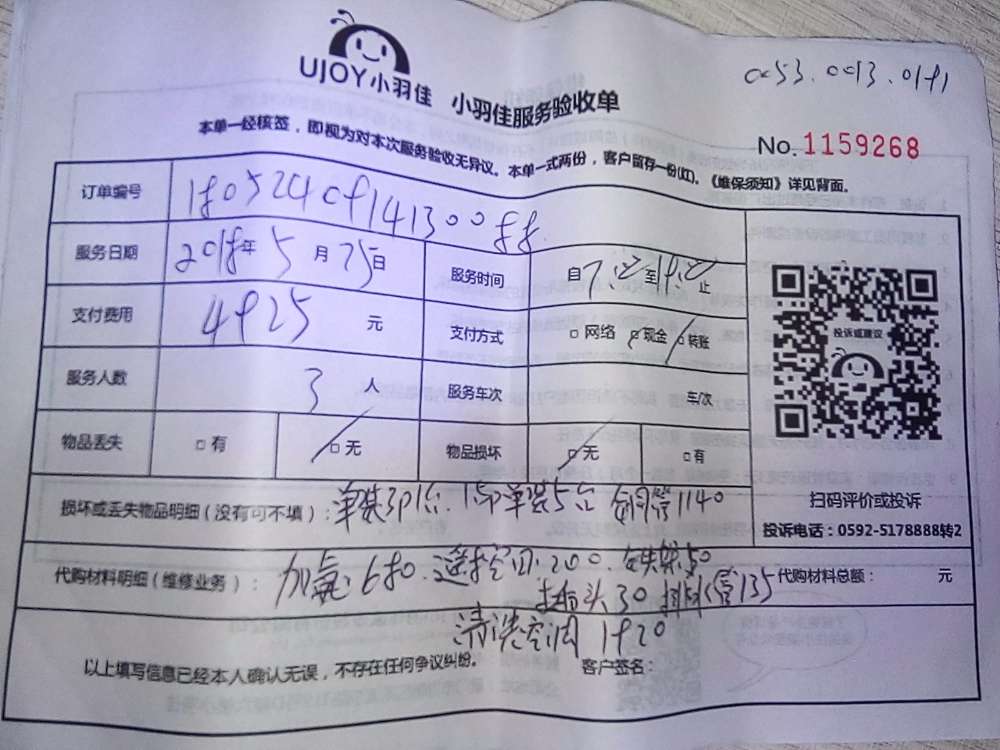 UJOY小羽佳 小羽佳服务验收单
No. 1159268
本单一经核签，即视为对本次服务验收无异议。本单一式两份，客户留存一份(红)。《维保须知》详见背面。
订单编号
服务日期 2018年5月25日 服务时间 自 至 止
支付费用 4825 元 支付方式 □ 网络 □ 现金 □ 转账
服务人数 3 人 服务车次 车/次
物品丢失 □ 有 □ 无 物品损坏 □ 无 □ 有
投诉或建议
扫码评价或投诉
投诉电话：0592-5178888转2
损坏或丢失物品明细（没有可不填）： 铜管1140
代购材料明细（维修业务）： 加氟：680. 遥控 200. 铁架50 代购材料总额： 元
插头30 排水管135
清洗空调 1820
以上填写信息已经本人确认无误，不存在任何争议纠纷。 客户签名：